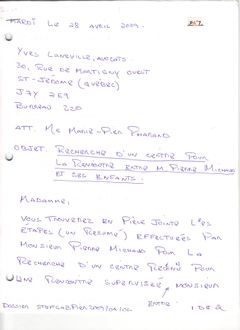 MARDI LE 28 AVRIL 2009.
YVES LANEVILLE, AVOCATS.
30, RUE DE MARTIGNY OUEST
ST-JÉRÔME (QUÉBEC)
J7Y 2E9
BUREAU 220
ATT. Me MARIE-PIER PHARAND
OBJET. RECHERCHE D'UN CENTRE POUR
LA RENCONTRE ENTRE M. PIERRE MICHAUD
ET SES ENFANTS.
MADAME;
VOUS TROUVEREZ EN PIÈCE JOINTE LES
ÉTAPES (OU RÉSUMÉ) EFFECTUÉES PAR
MONSIEUR PIERRE MICHAUD POUR LA
RECHERCHE D'UN CENTRE POUR
UNE RENCONTRE SUPERVISÉE, MONSIEUR
DOSSIER 1 DE 2